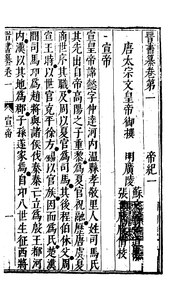 晉書纂卷第一
帝紀一
唐太宗文皇帝御撰
明廣陵
蘇文
張
宣帝
宣皇帝諱懿字仲達河內溫縣孝敬里人姓司馬氏
其先出自帝高陽之子重黎爲夏官祝融歷唐虞夏
商世序其職及周以夏官爲司馬其後程伯休父周
宣王時以世官克平徐方錫以官族因而爲氏楚漢
間司馬卬爲趙將與諸侯伐秦秦亡立爲殷王都河
內漢以其地爲郡子孫遂家焉自卬八世生征西將
晉書纂卷一
宣帝